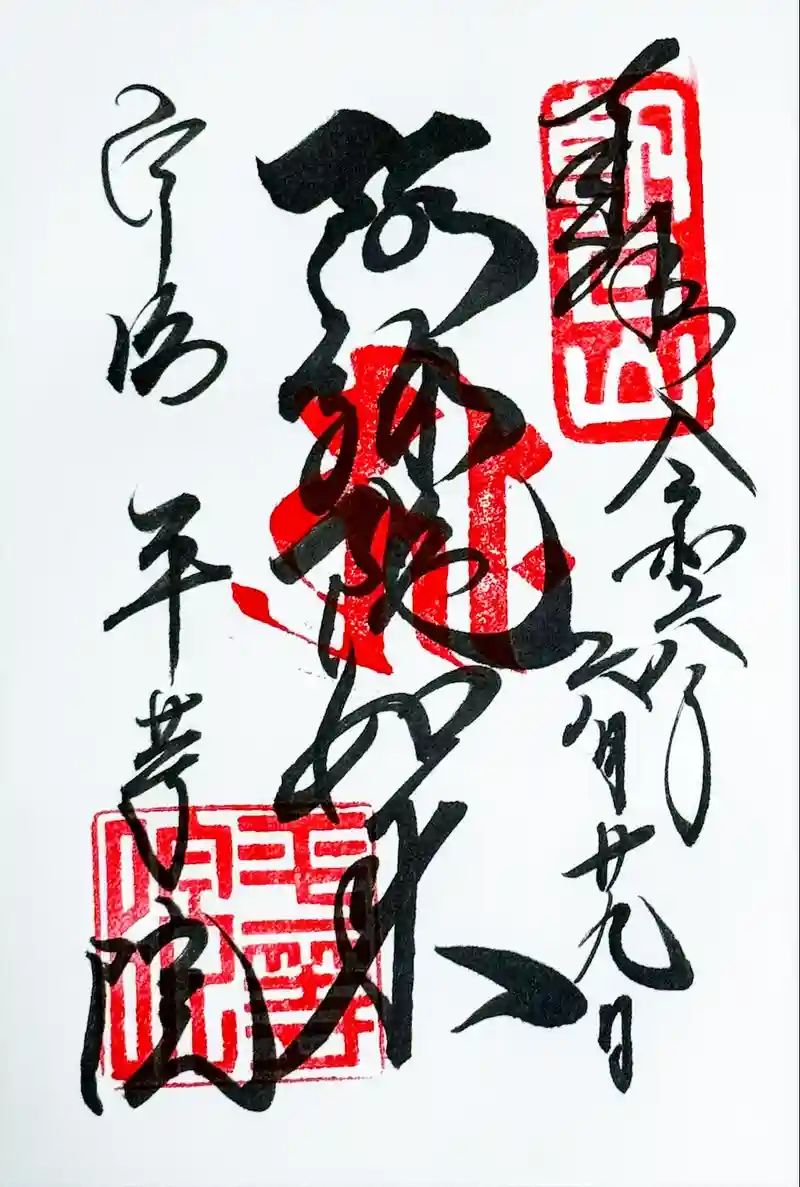 奉拝 令和六年
六月廿九日
阿弥陀如来
宇治 平等院
朝日山
平等院印